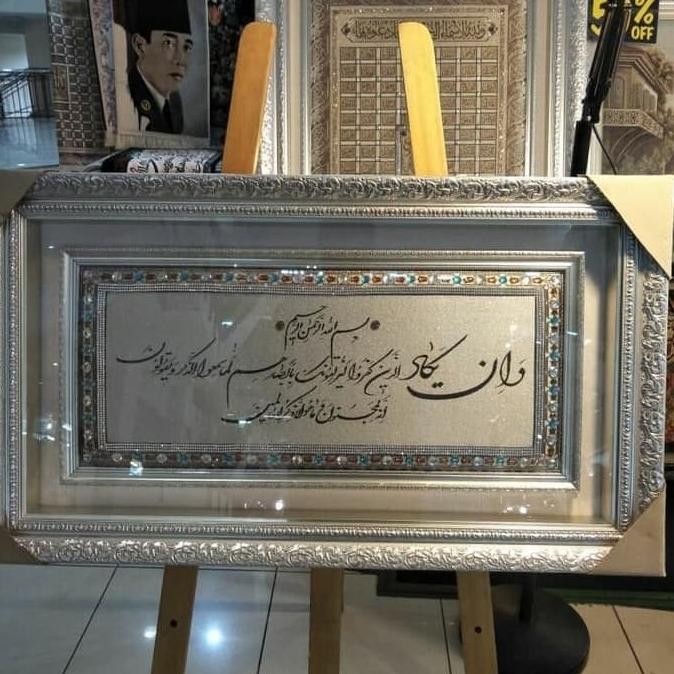 بسم الله الرحمن الرحیم
وان یکاد الذین کفروا لیزلقونک بابصارهم لما سمعوا الذکر و یقولون
انه لمجنون و ما هو الا ذکر للعالمین
% OFF